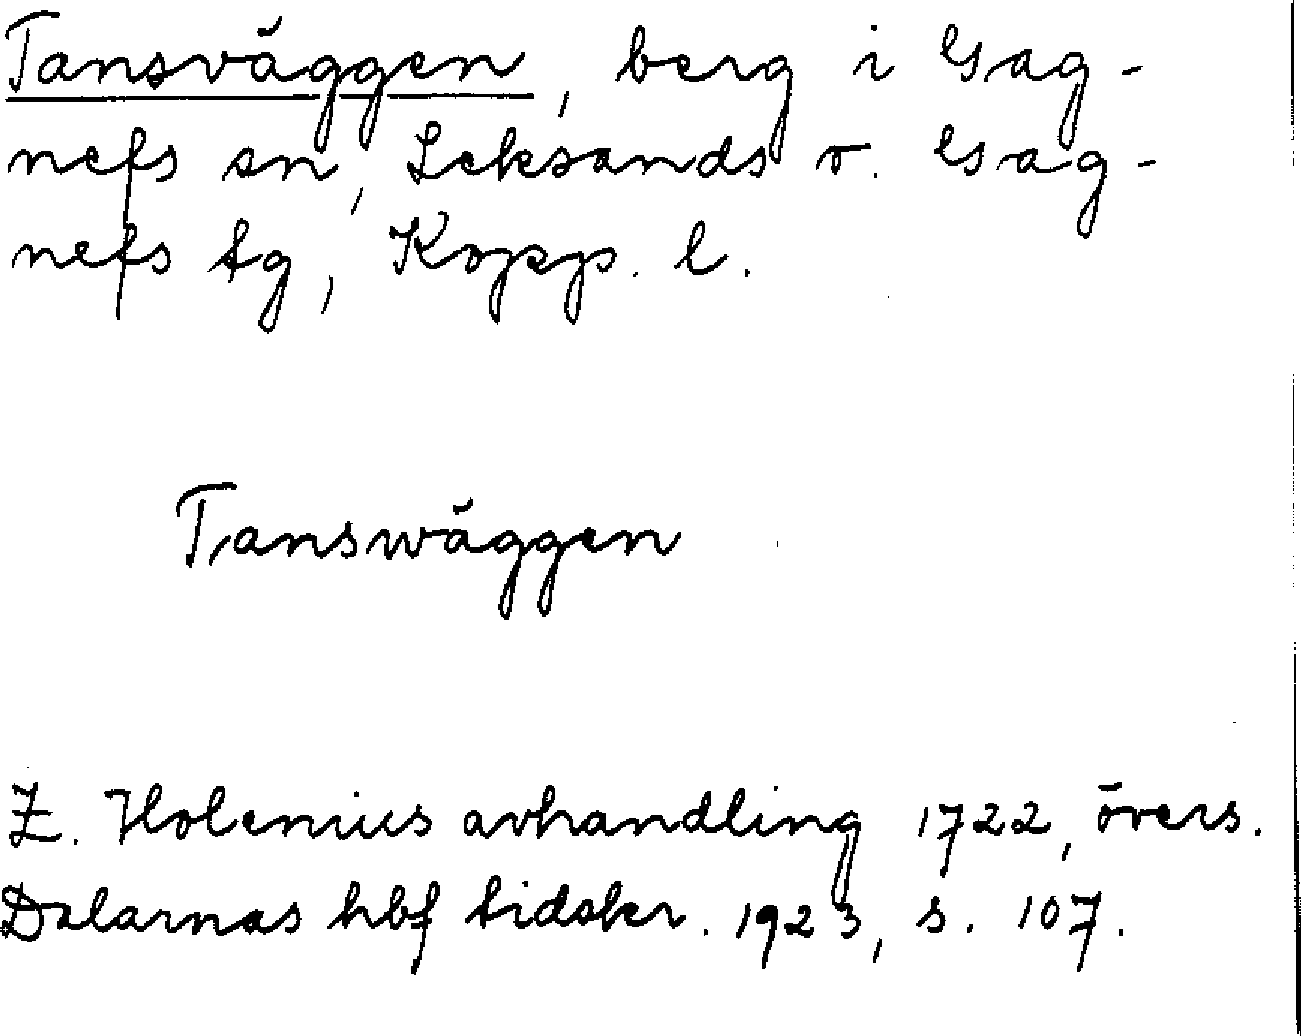 Tansväggen, berg i Gag-
nefs sn, Leksands o. Gag-
nefs tg, Kopp. l.
Tanswäggen
Z. Holenius avhandling 1722, övers.
Dalarnas hbf tidskr. 1923, s. 107.